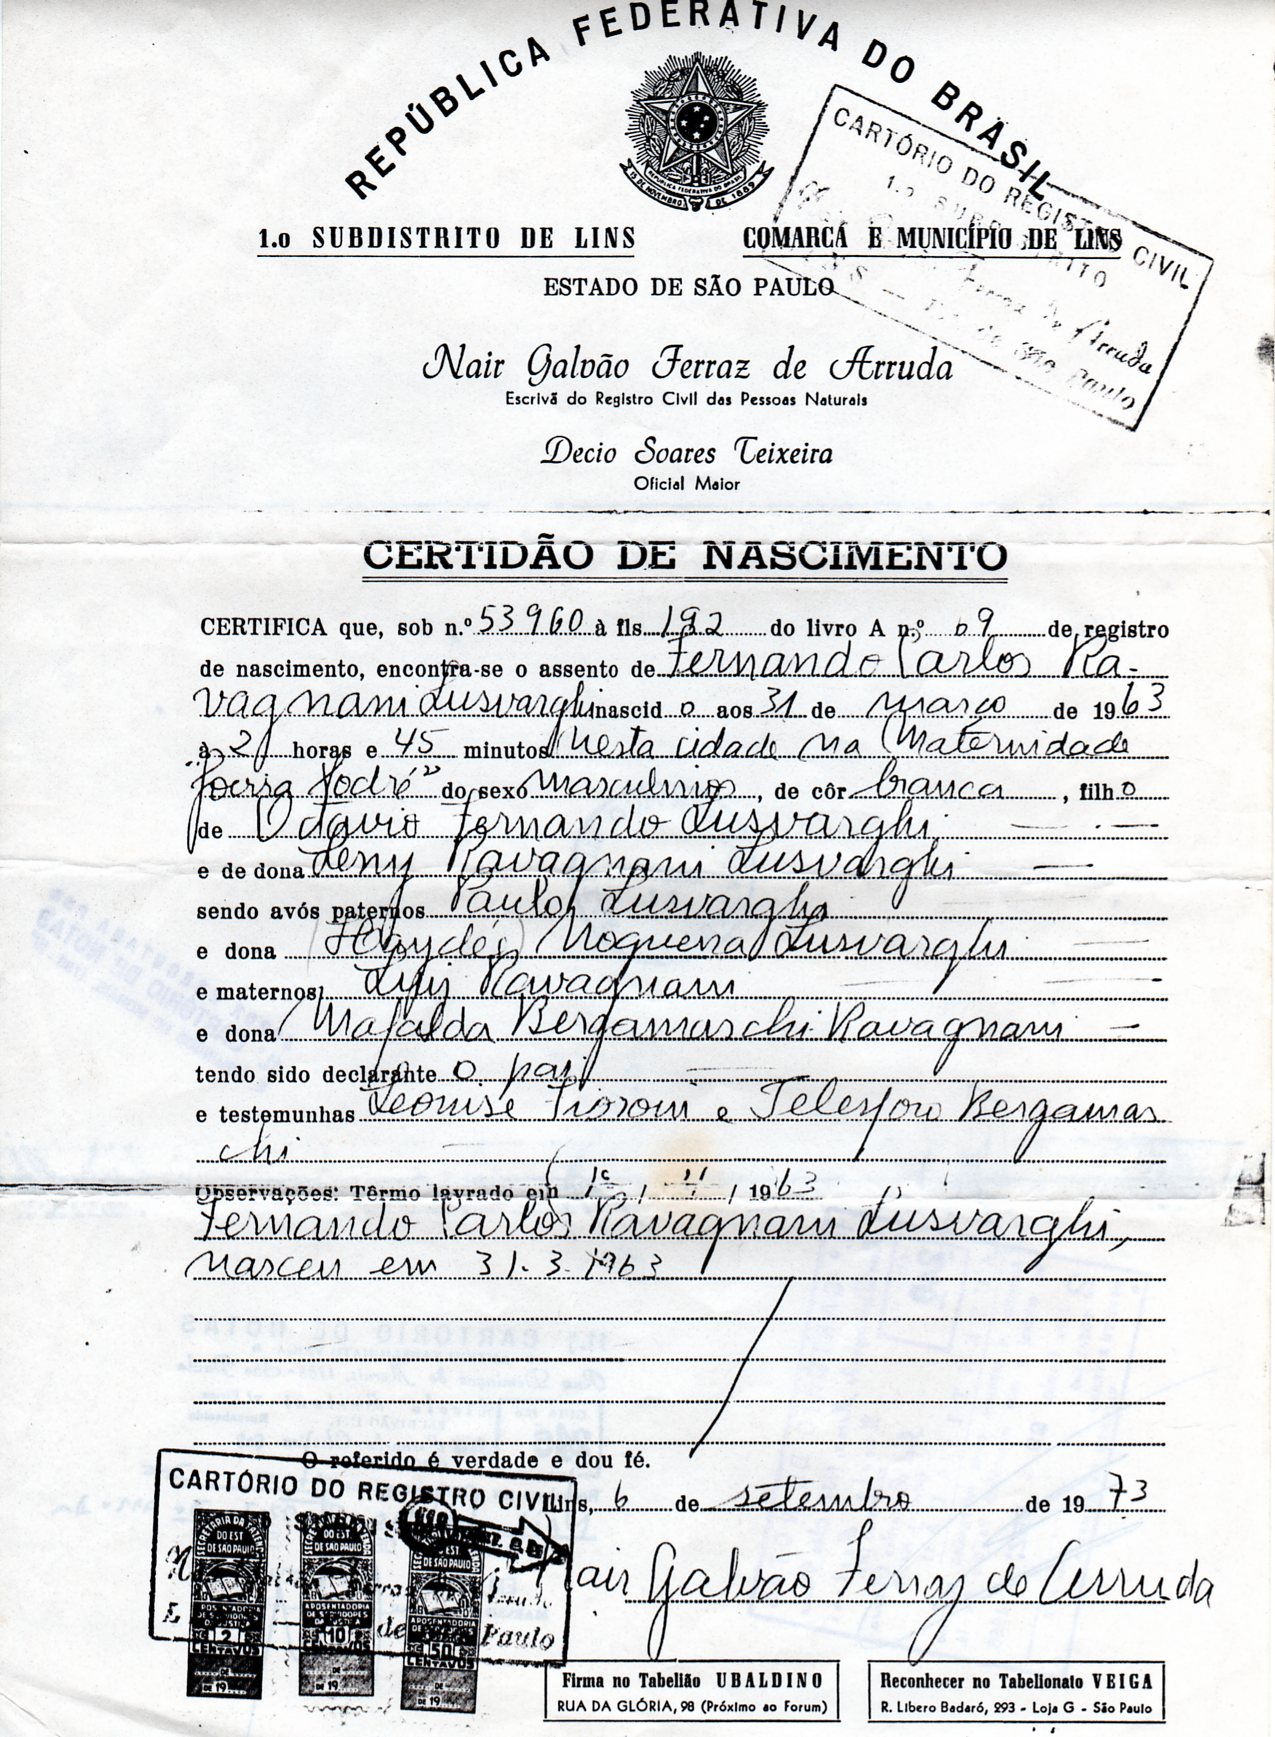 REPÚBLICA FEDERATIVA DO BRASIL
15 DE NOVEMBRO DE 1889
CARTÓRIO DO REGISTRO CIVIL
1.o SUBDISTRITO
Ferraz de Arruda
LINS — Est. de São Paulo
1.o SUBDISTRITO DE LINS COMARCA E MUNICÍPIO DE LINS
ESTADO DE SÃO PAULO
Nair Galvão Ferraz de Arruda
Escrivã do Registro Civil das Pessoas Naturais
Decio Soares Teixeira
Oficial Maior
CERTIDÃO DE NASCIMENTO
CERTIFICA que, sob n.º 53960 à fls. 192 do livro A n.º 69 de registro
de nascimento, encontra-se o assento de Fernando Carlos Ra-
vagnani Lusvarghi nascido aos 31 de março de 1963
à 2 horas e 45 minutos nesta cidade na Maternidade
do sexo masculino, de côr branca, filho
de Octavio Fernando Lusvarghi
e de dona Leny Ravagnani Lusvarghi
sendo avós paternos Paulo Lusvarghi
e dona Haydée Nogueira Lusvarghi
e maternos Luiz Ravagnani
e dona Mafalda Bergamaschi Ravagnani
tendo sido declarante o pai
e testemunhas Leonise Fioroni e Telesforo Bergamas
chi
Observações: Têrmo lavrado em 1963
Fernando Carlos Ravagnani Lusvarghi,
nasceu em 31.3.1963
O referido é verdade e dou fé.
Lins, 6 de setembro de 1973
Nair Galvão Ferraz de Arruda
CARTÓRIO DO REGISTRO CIVIL
SECRETARIA DA FAZENDA
DO EST.
DE SÃO PAULO
APOSENTADORIA
DE SERVIDORES
DA JUSTIÇA
2
CENTAVOS
DE
DE 19
DO EST.
DE SÃO PAULO
APOSENTADORIA
DE SERVIDORES
DA JUSTIÇA
10
CENTAVOS
DE
DE 19
DO EST.
DE SÃO PAULO
APOSENTADORIA
50
CENTAVOS
DE
DE 19
de Paulo
Firma no Tabelião UBALDINO
RUA DA GLÓRIA, 98 (Próximo ao Forum)
Reconhecer no Tabelionato VEIGA
R. Libero Badaró, 293 - Loja G - São Paulo